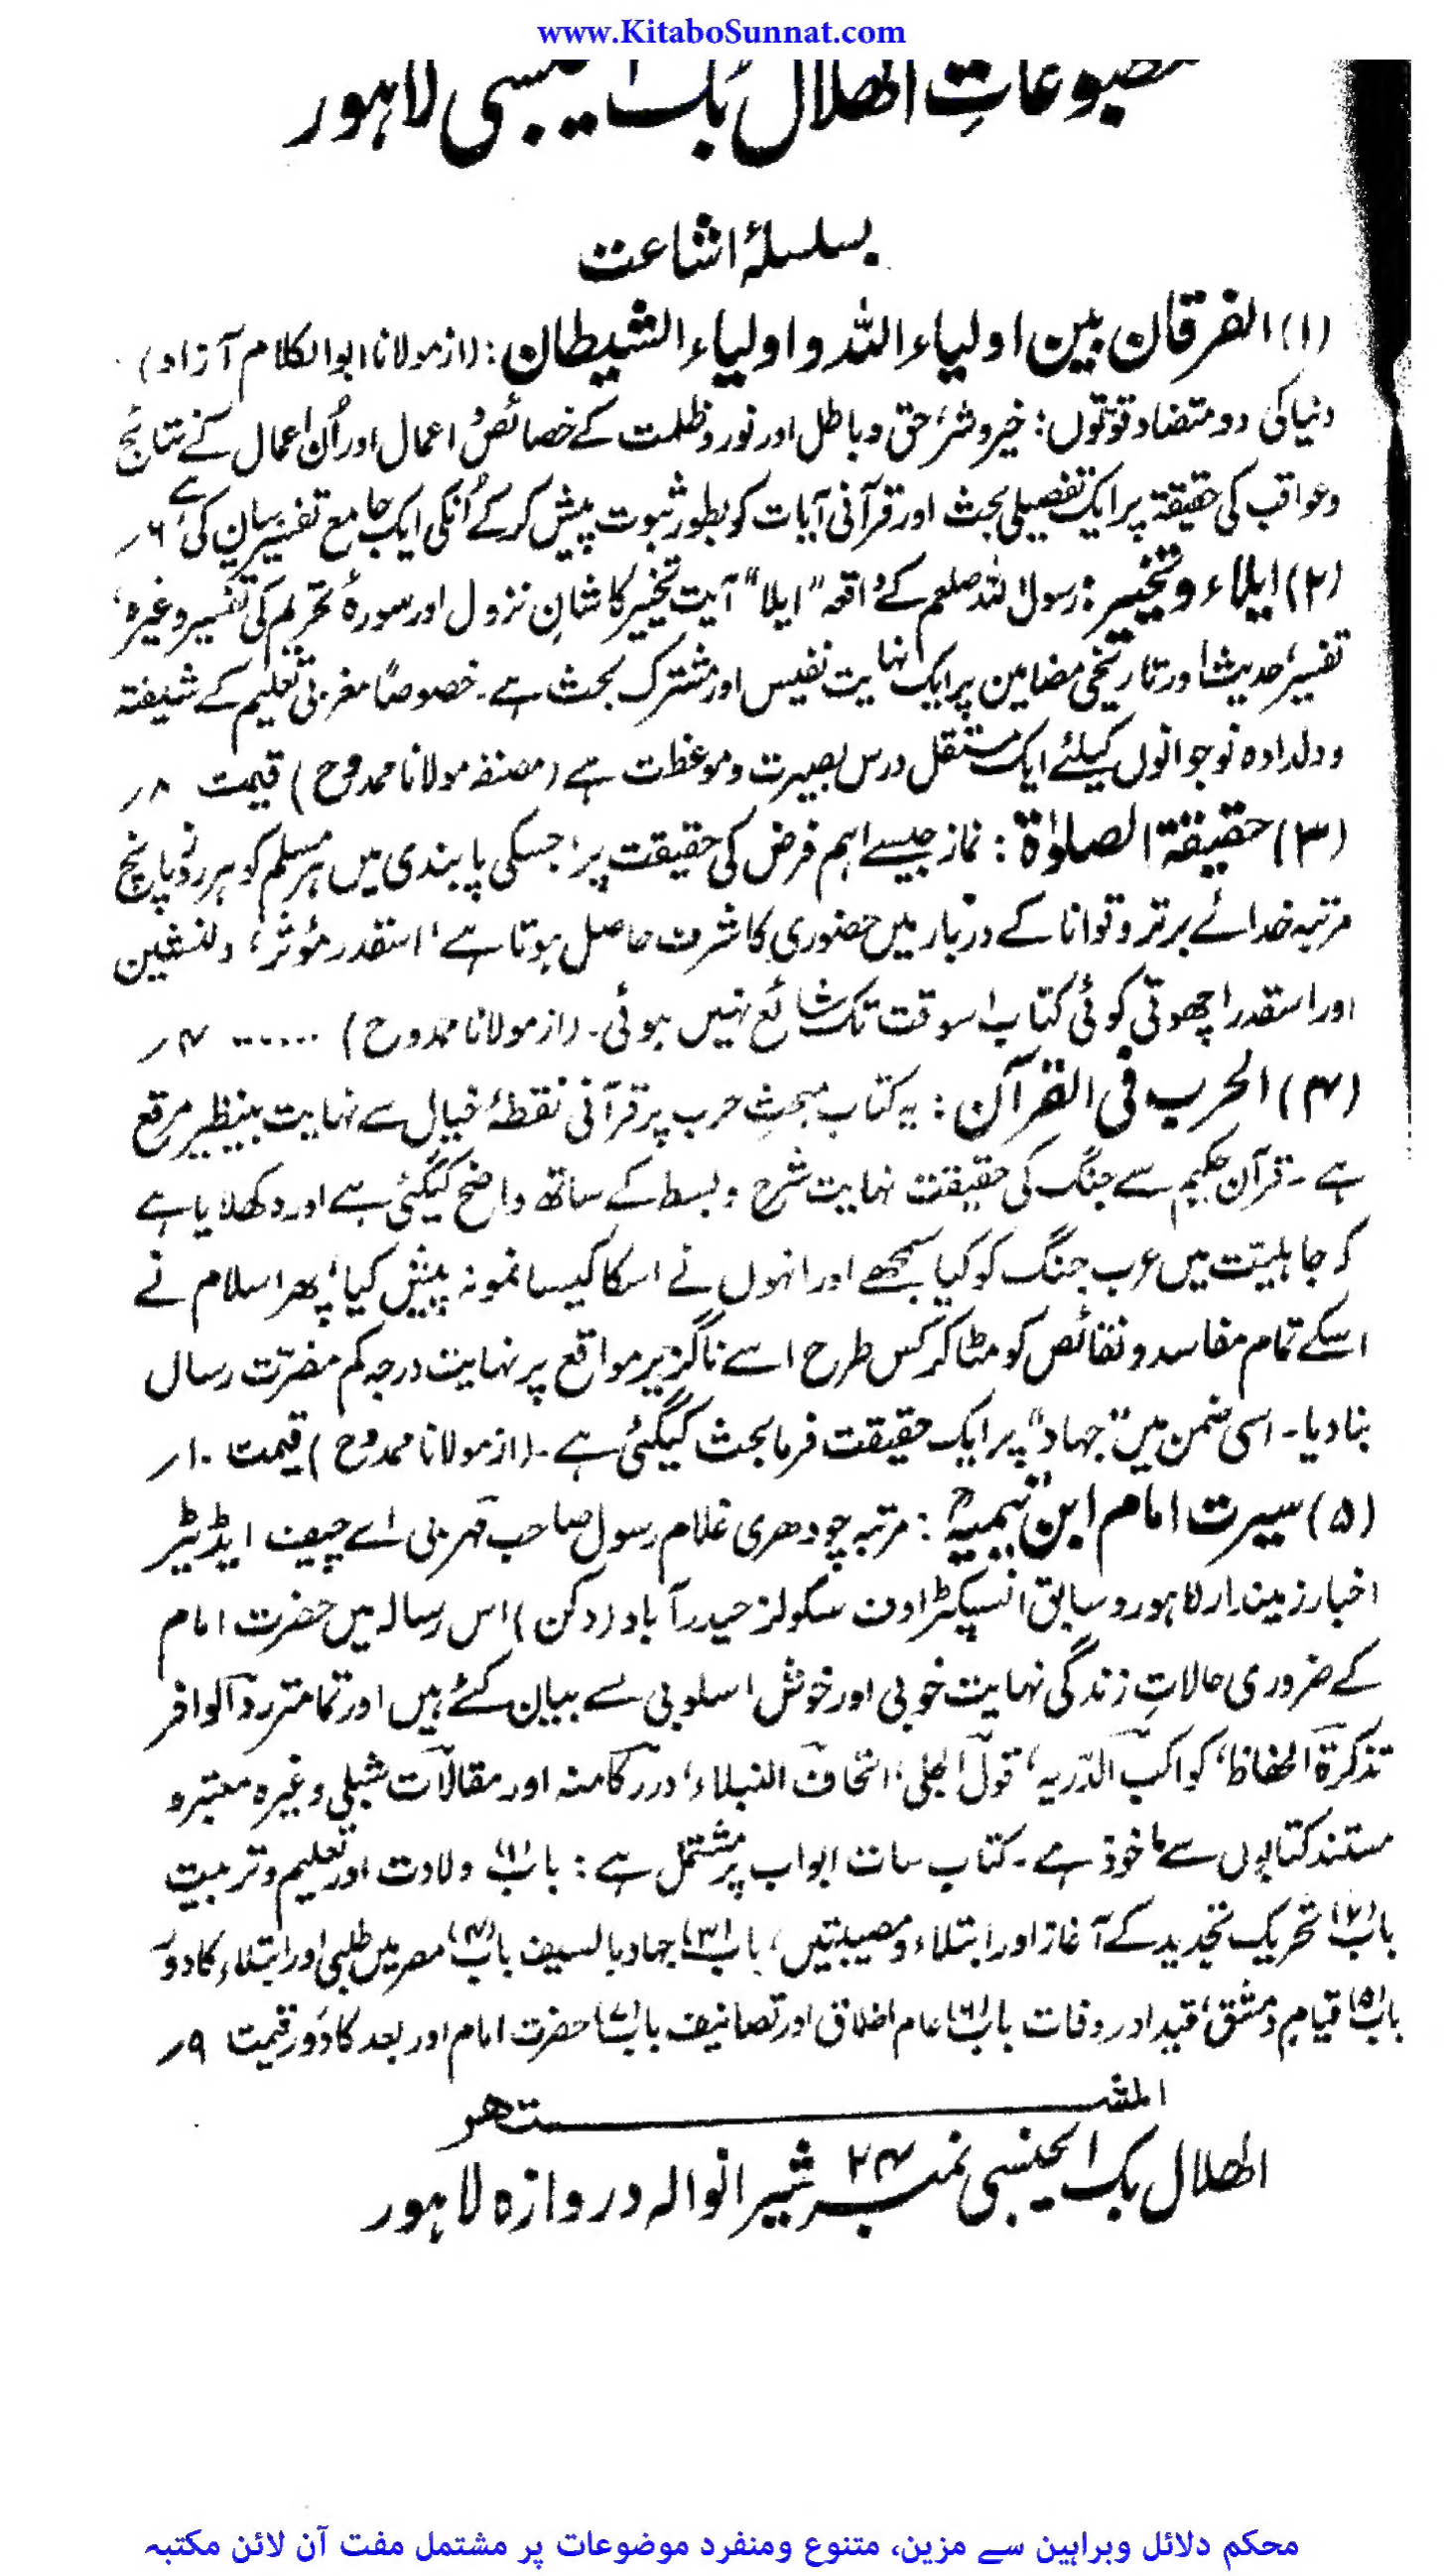 www.KitaboSunnat.com
مطبوعاتِ الہلال بک ایجنسی لاہور
بسلسلۂ اشاعت
(۱) الفرقان بین اولیاء اللہ و اولیاء الشیطان: (از مولانا ابوالکلام آزاد)
دنیا کی دو متضاد قوتوں: خیر و شر، حق و باطل اور نور و ظلمت کے خصائص، اعمال اور اُن اعمال کے نتائج
و عواقب کی حقیقۃ پر ایک تفصیلی بحث اور قرآنی آیات کو بطور ثبوت پیش کر کے اُنکی ایک جامع تفسیر بیان کی ہے ۶؍
(۲) ایلاء و تخییر: رسول اللہ صلعم کے واقعہ "ایلا" آیت تخییر کا شانِ نزول اور سورۂ تحریم کی تفسیر وغیرہ،
تفسیر، حدیث اور تاریخی مضامین پر ایک نہایت نفیس اور مشترک بحث ہے۔ خصوصاً مغربی تعلیم کے شیفتہ
و دلدادہ نوجوانوں کیلئے ایک مستقل درس بصیرت و موعظت ہے (مصنفہ مولانا ممدوح) قیمت ۸؍
(۳) حقیقۃ الصلوٰۃ: نماز جیسے اہم فرض کی حقیقت پر، جسکی پابندی میں ہر مسلم کو ہر روز پانچ
مرتبہ خدائے برتر و توانا کے دربار میں حضوری کا شرف حاصل ہوتا ہے، اسقدر مؤثر، دلنشین
اور اسقدر اچھوتی کوئی کتاب اسوقت تک شائع نہیں ہوئی۔ (از مولانا ممدوح) ...... ۴؍
(۴) الحرب فی القرآن: یہ کتاب مبحثِ حرب پر قرآنی نقطۂ خیال سے نہایت بینظیر مرقع
ہے۔ قرآن حکیم سے جنگ کی حقیقت نہایت شرح و بسط کے ساتھ واضح کیگئی ہے اور دکھلایا ہے
کہ جاہلیّت میں عرب جنگ کو کیا سمجھے اور انہوں نے اسکا کیسا نمونہ پیش کیا، پھر اسلام نے
اسکے تمام مفاسد و نقائص کو مٹا کر کس طرح اسے ناگزیر مواقع پر نہایت درجہ کم مضرّت رساں
بنا دیا۔ اسی ضمن میں "جہاد" پر ایک حقیقت فرما بحث کیگئی ہے۔ (از مولانا ممدوح) قیمت ۱۰؍
(۵) سیرت امام ابن تیمیہؒ: مرتبہ چودھری غلام رسول صاحب مہر بی اے چیف ایڈیٹر
اخبار زمیندار لاہور و سابق انسپکٹر اوف سکولز حیدرآباد (دکن) اس رسالہ میں حضرت امام
کے ضروری حالاتِ زندگی نہایت خوبی اور خوش اسلوبی سے بیان کئے ہیں اور تمامتر ردّ الوافر
تذکرۃ الحفاظ، کواکب الدّریہ، قول الجلی، اتحاف النبلاء، درر کامنہ اور مقالات شبلی وغیرہ معتبر و
مستند کتابوں سے ماخوذ ہے۔ کتاب سات ابواب پر مشتمل ہے: باب (۱) ولادت اور تعلیم و تربیت
باب (۲) تحریک تجدید کے آغاز اور ابتلاء و مصیبتیں، باب (۳) جہاد بالسیف باب (۴) مصر میں طلبی اور ابتلاء کا دَور
باب (۵) قیامِ دمشق، قید اور وفات باب (۶) عام اخلاق اور تصانیف باب (۷) حضرت امام اور بعد کا دَور قیمت ۹؍
المشتہر
الہلال بک ایجنسی نمبر ۲۴ شیرانوالہ دروازہ لاہور
محکم دلائل وبراہین سے مزین، متنوع ومنفرد موضوعات پر مشتمل مفت آن لائن مکتبہ